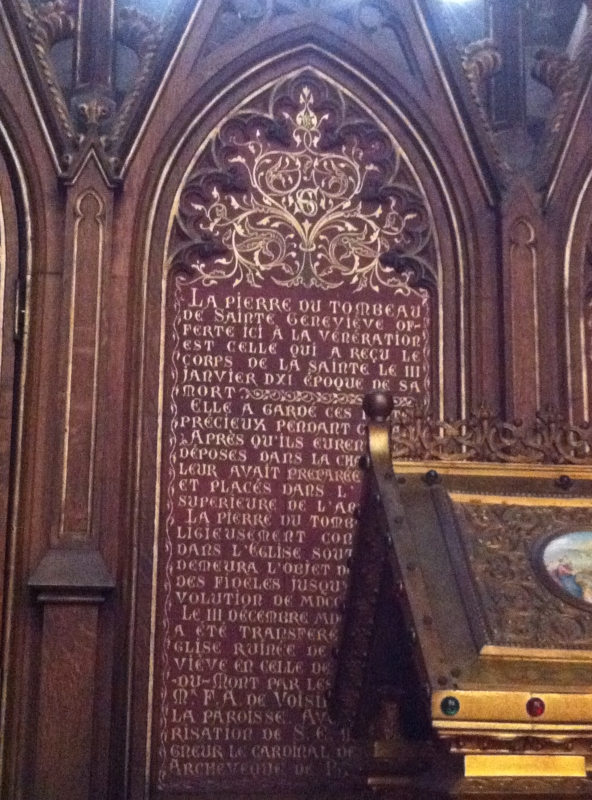 La pierre du tombeau
de Sainte Geneviève of-
ferte ici à la vénération
est celle qui a reçu le
corps de la Sainte le III
janvier DXI époque de sa
mort
Elle a gardé ces
précieux pendant
Après qu'ils eurent
déposés dans la
leur avait préparée
et placés dans l'
supérieure de
La pierre du
ligieusement
dans l'église
demeura l'objet
des fidèles
volution de
Le III décembre
a été
glise ruinée de
viève en celle de
-du-Mont par les
Mr F. A. de
la paroisse.
risation de S. E.
gneur le cardinal de
Archevêque de